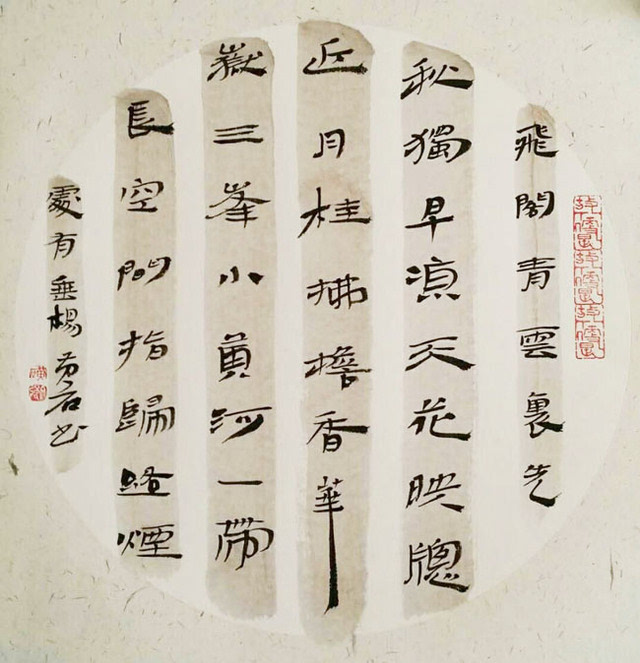 飛閣青雲裏先
秋獨早涼天花映牕
近月桂拂檐香華
嶽三峯小黃河一帶
長空間指歸路煙
處有垂楊